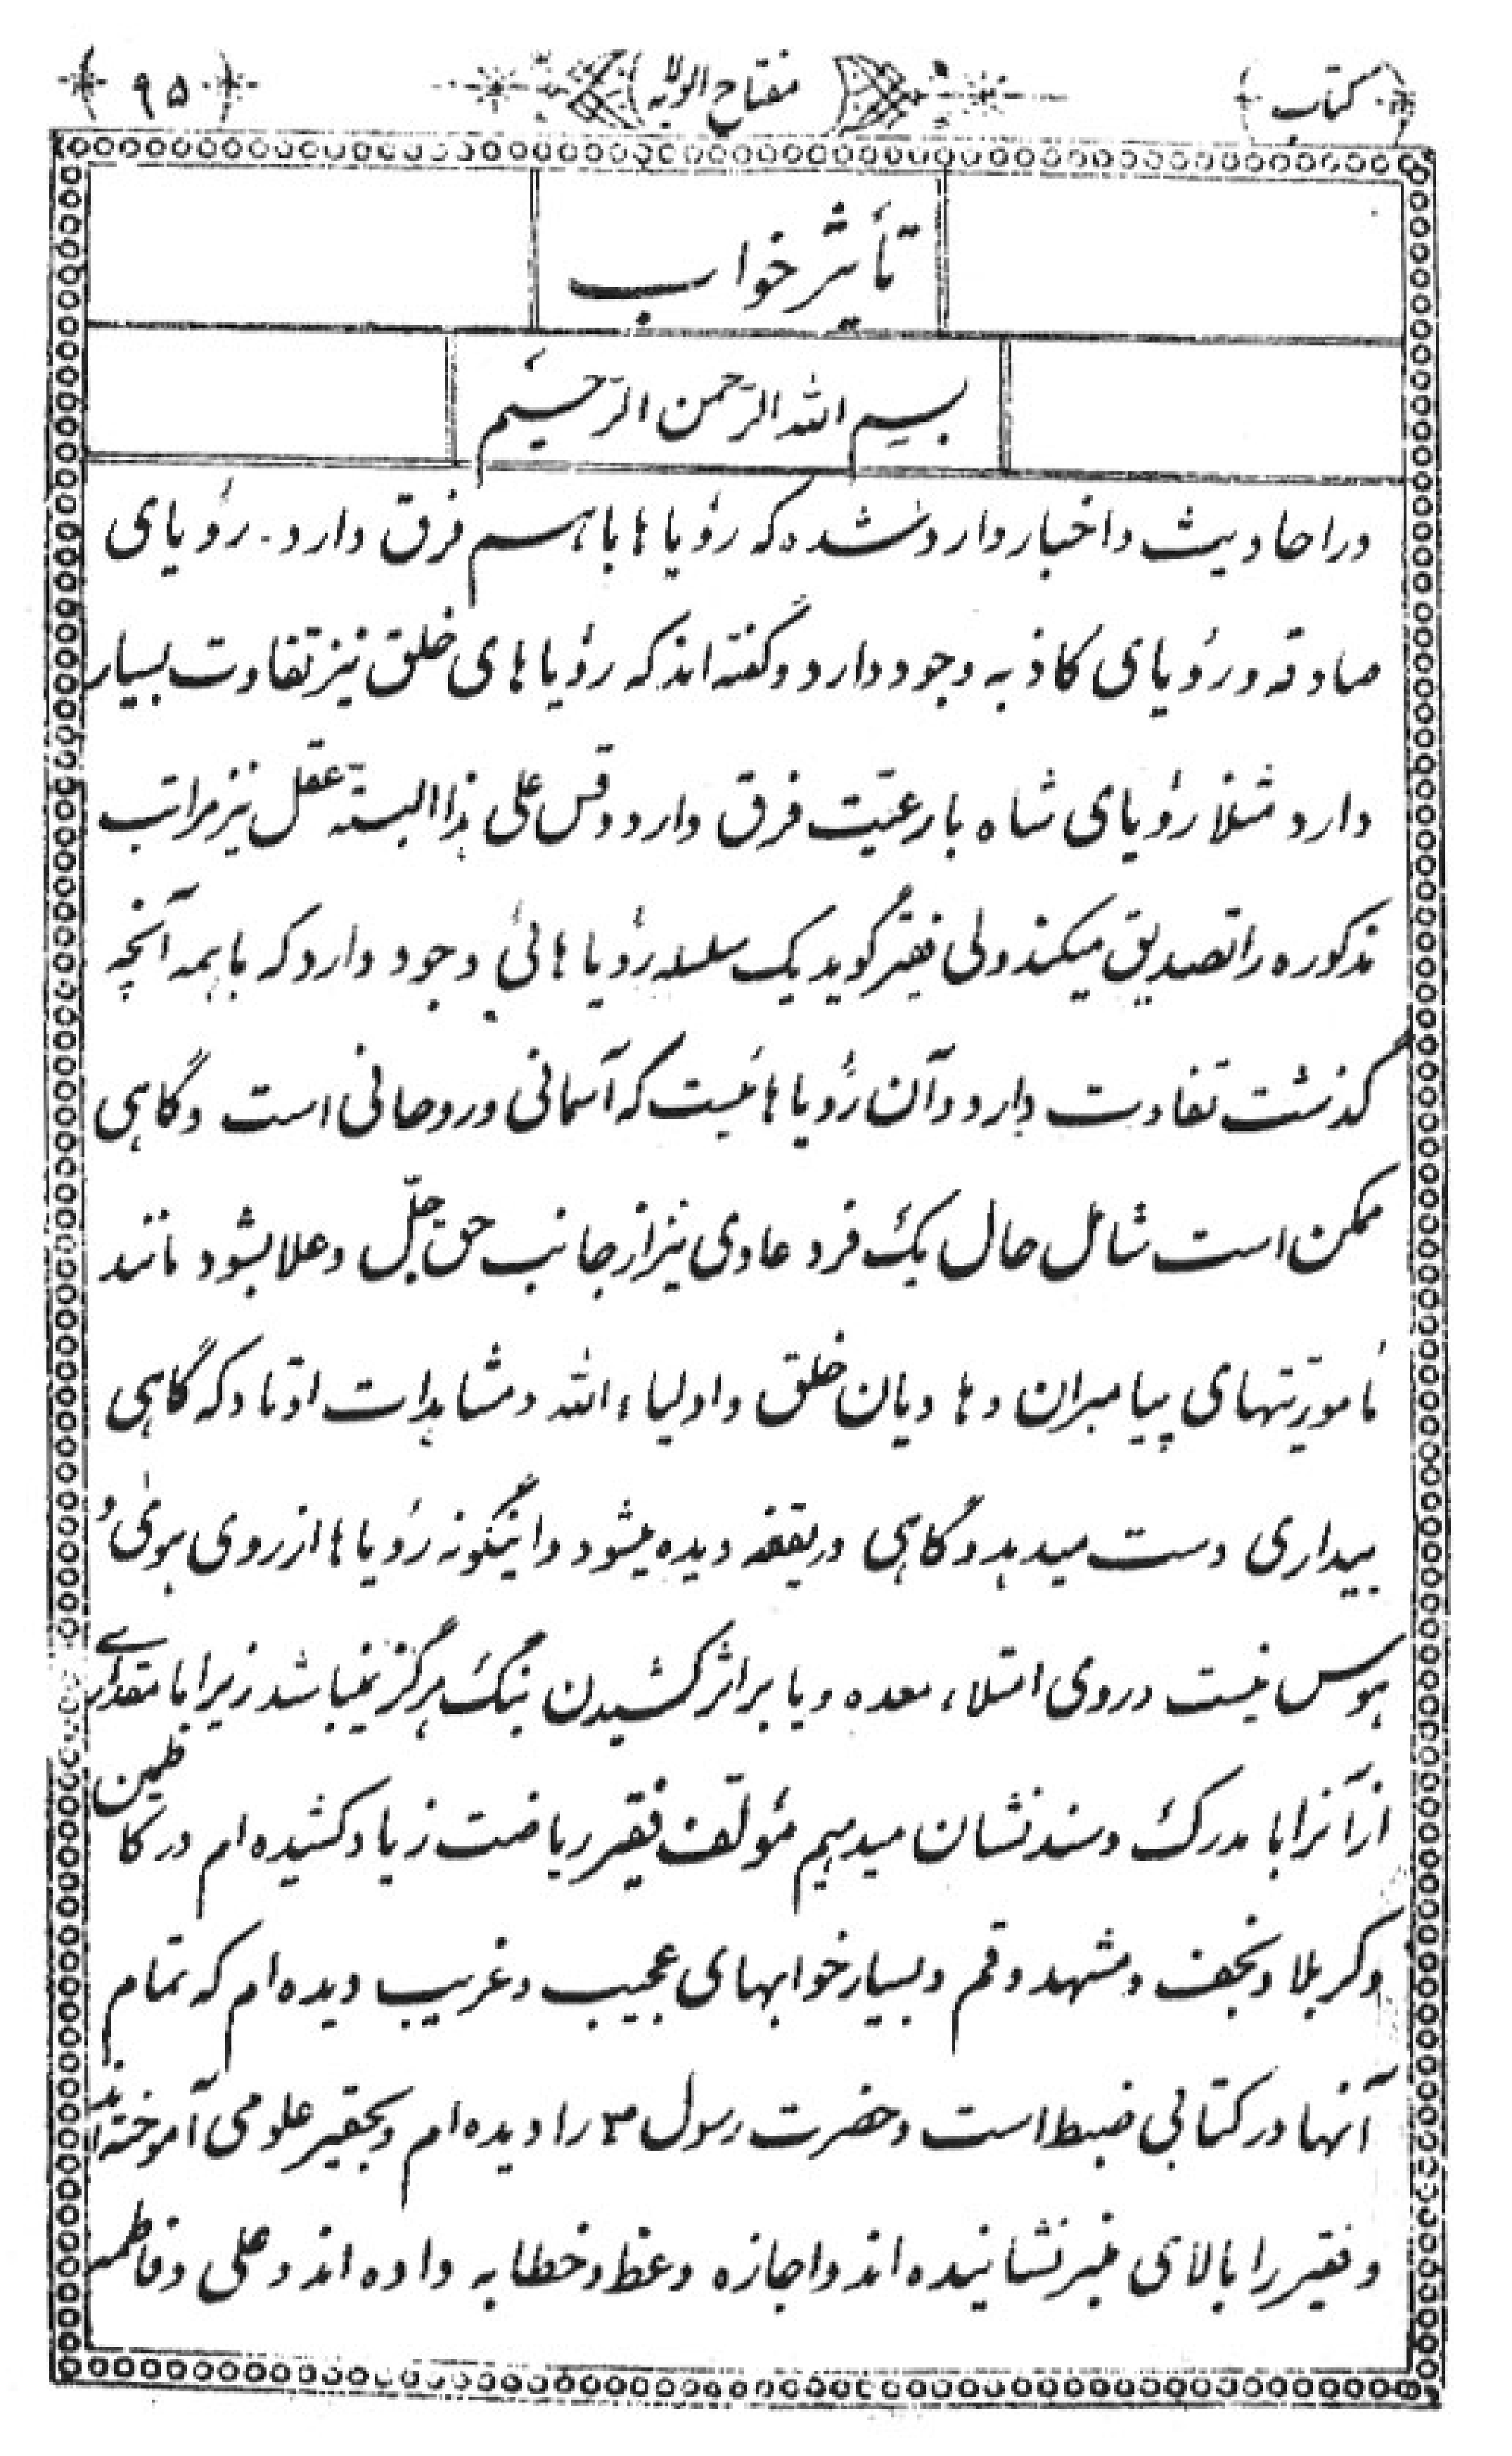 کتاب مفتاح الولایه ۹۵
تأثیر خواب
بسم الله الرحمن الرحیم
در احادیث و اخبار وارد شده که رؤیاها با هم فرق دارد. رؤیای
صادقه و رؤیای کاذبه وجود دارد و گفته‌اند که رؤیاهای خلق نیز تفاوت بسیار
دارد مثلا رؤیای شاه با رعیّت فرق دارد و قس علی هذا البته عقل نیز مراتب
مذکوره را تصدیق میکند ولی فقیر گوید یک سلسله رؤیاهائی وجود دارد که با همه آنچه
گذشت تفاوت دارد و آن رؤیاهائیست که آسمانی و روحانی است و گاهی
ممکن است شامل حال یک فرد عادی نیز از جانب حق جلّ و علا بشود مانند
مأموریّتهای پیامبران و هادیان خلق و اولیاء الله و مشاهدات اوتاد که گاهی
بیداری دست میدهد و گاهی در یقظه دیده میشود و اینگونه رؤیاها از روی هوی و
هوس نیست و روی امتلاء معده و یا بر اثر کشیدن بنگ هرگز نمیباشد زیرا ما مقداری
از آنرا با مدرک و سند نشان میدهیم مؤلّف فقیر ریاضت زیاد کشیده‌ام در کاظمین
و کربلا و نجف و مشهد و قم و بسیار خوابهای عجیب و غریب دیده‌ام که تمام
آنها در کتابی ضبط است و حضرت رسول ص را دیده‌ام و بحقیر علومی آموخته‌اند
و فقیر را بالای منبر نشانیده‌اند و اجازه وعظ و خطابه داده‌اند و علی و فاطمه